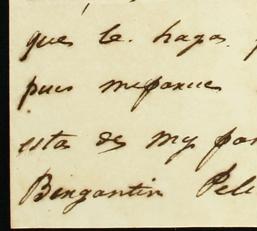 que le. haga.
pues meparece
esta de my par
Bergantin Pele